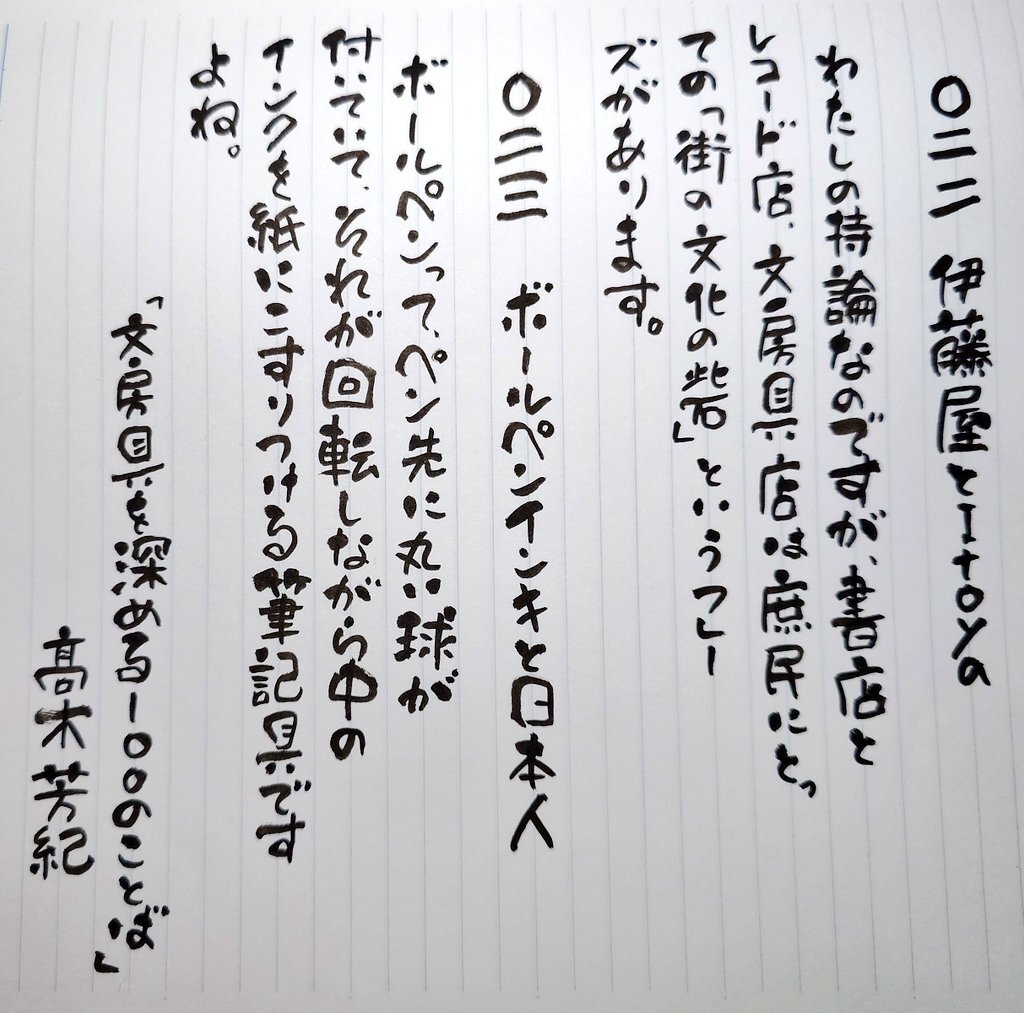 〇二二 伊藤屋とItoyの
わたしの持論なのですが、書店と
レコード店、文房具店は庶民にとっ
ての「街の文化の砦」というフレー
ズがあります。
〇二三 ボールペンインキと日本人
ボールペンって、ペン先に丸い球が
付いていて、それが回転しながら中の
インクを紙にこすりつける筆記具です
よね。
「文房具を深める100のことば」
高木芳紀